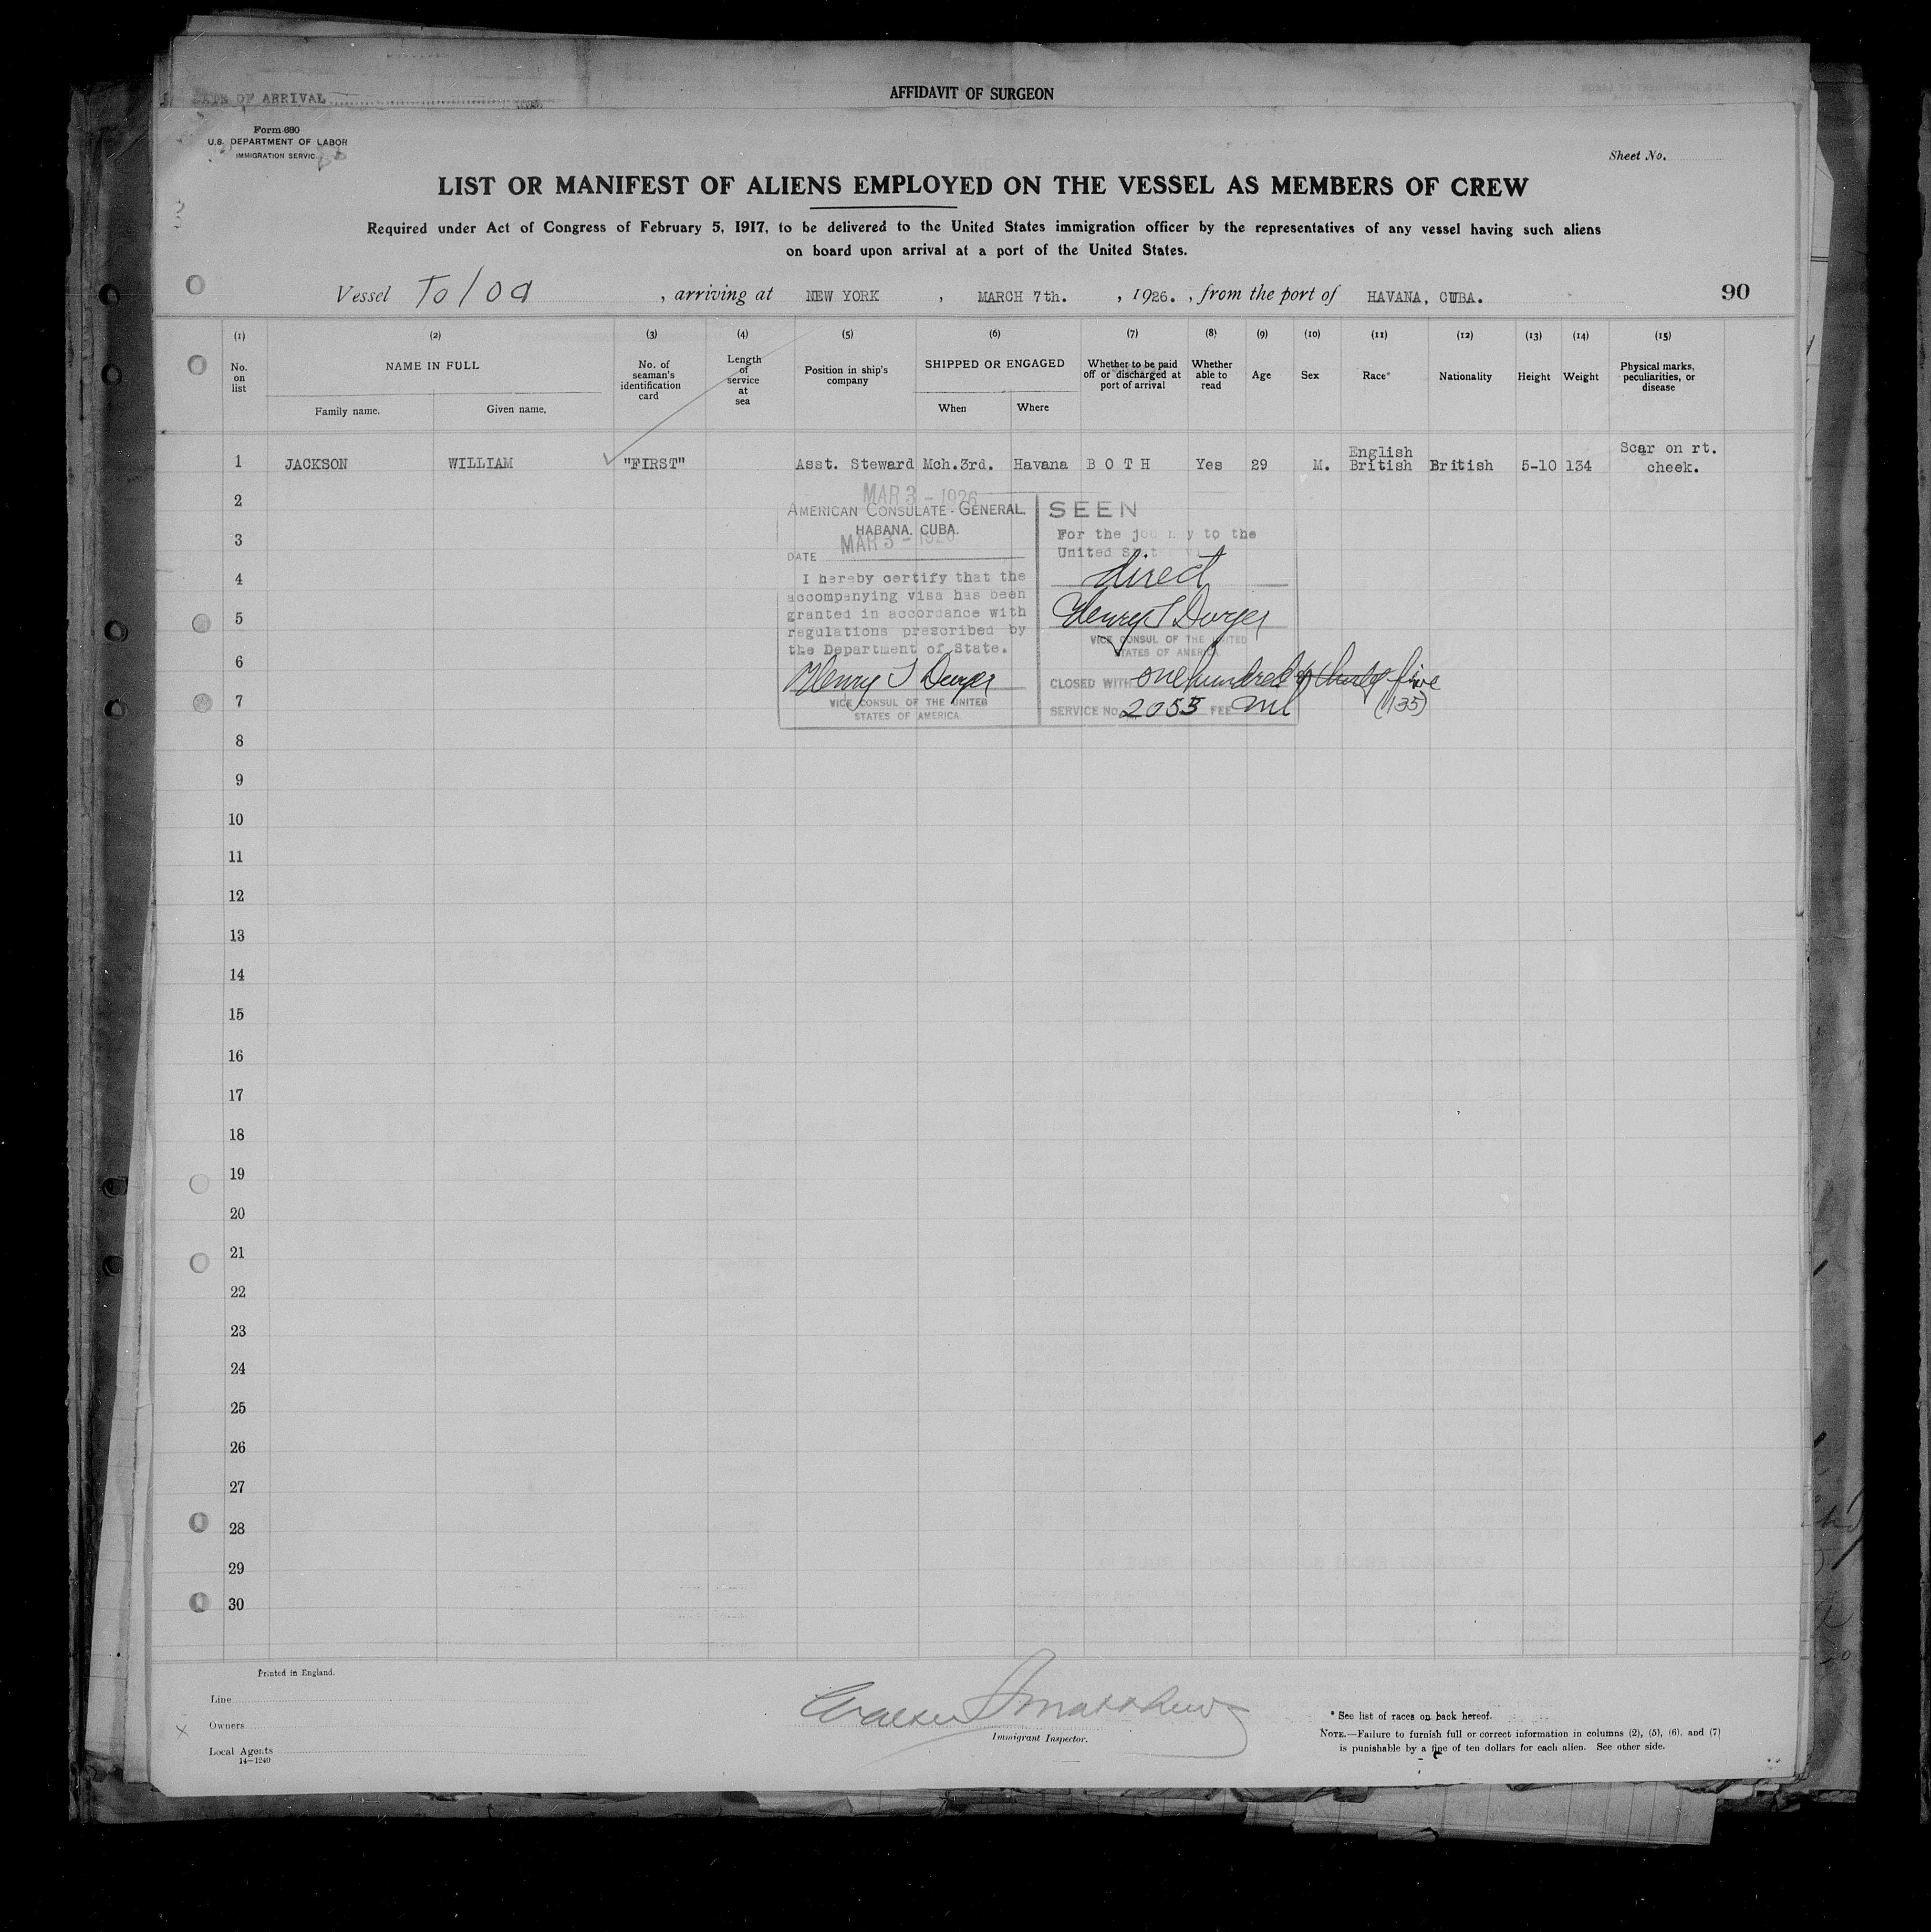 DATE OF ARRIVAL
AFFIDAVIT OF SURGEON
Form 680
U.S. DEPARTMENT OF LABOR
IMMIGRATION SERVIC
Sheet No.
LIST OR MANIFEST OF ALIENS EMPLOYED ON THE VESSEL AS MEMBERS OF CREW
Required under Act of Congress of February 5, 1917, to be delivered to the United States immigration officer by the representatives of any vessel having such aliens
on board upon arrival at a port of the United States.
Vessel Toloa , arriving at NEW YORK , MARCH 7th. , 1926. , from the port of HAVANA, CUBA. 90
(1) (2) (3) (4) (5) (6) (7) (8) (9) (10) (11) (12) (13) (14) (15)
No. on list NAME IN FULL Family name. Given name. No. of seaman's identification card Length of service at sea Position in ship's company SHIPPED OR ENGAGED When Where Whether to be paid off or discharged at port of arrival Whether able to read Age Sex Race* Nationality Height Weight Physical marks, peculiarities, or disease
1 JACKSON WILLIAM "FIRST" Asst. Steward Mch.3rd. Havana BOTH Yes 29 M. English British British 5-10 134 Scar on rt. cheek.
2
3
4
5
6
7
8
9
10
11
12
13
14
15
16
17
18
19
20
21
22
23
24
25
26
27
28
29
30
MAR 3 - 1926
AMERICAN CONSULATE-GENERAL.
HABANA. CUBA.
DATE MAR 3 - 1926
I hereby certify that the
accompanying visa has been
granted in accordance with
regulations prescribed by
the Department of State.
Henry T Dwyer
VICE CONSUL OF THE UNITED
STATES OF AMERICA.
SEEN
For the journey to the
United States
direct
Henry T Dwyer
VICE CONSUL OF THE UNITED
STATES OF AMERICA
CLOSED WITH one hundred & thirty five
(135)
SERVICE No. 2053 FEE nil
Printed in England.
Line
Owners
Local Agents
14-1240
Walter Matthews
Immigrant Inspector.
* See list of races on back hereof.
NOTE.—Failure to furnish full or correct information in columns (2), (5), (6), and (7)
is punishable by a fine of ten dollars for each alien. See other side.